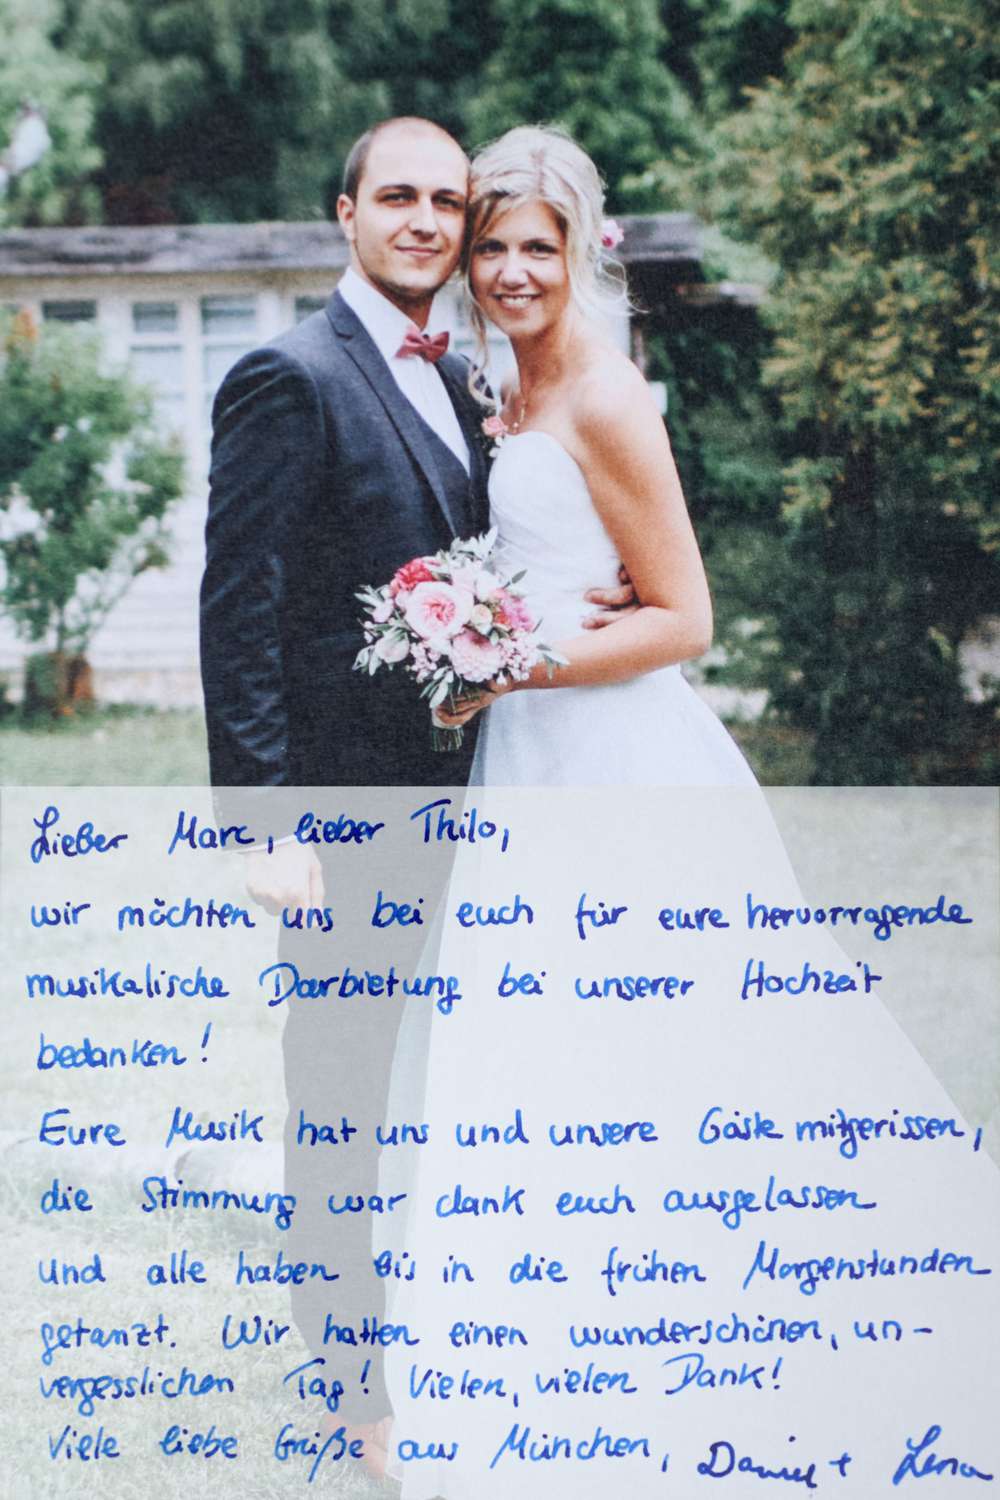 Lieber Marc, lieber Thilo,
wir möchten uns bei euch für eure hervorragende
musikalische Darbietung bei unserer Hochzeit
bedanken!
Eure Musik hat uns und unsere Gäste mitgerissen,
die Stimmung war dank euch ausgelassen
und alle haben bis in die frühen Morgenstunden
getanzt. Wir hatten einen wunderschönen, un-
vergesslichen Tag! Vielen, vielen Dank!
Viele liebe Grüße aus München, Daniel + Lena